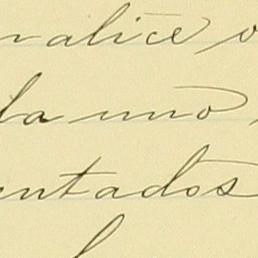 nalice o
da uno
entados